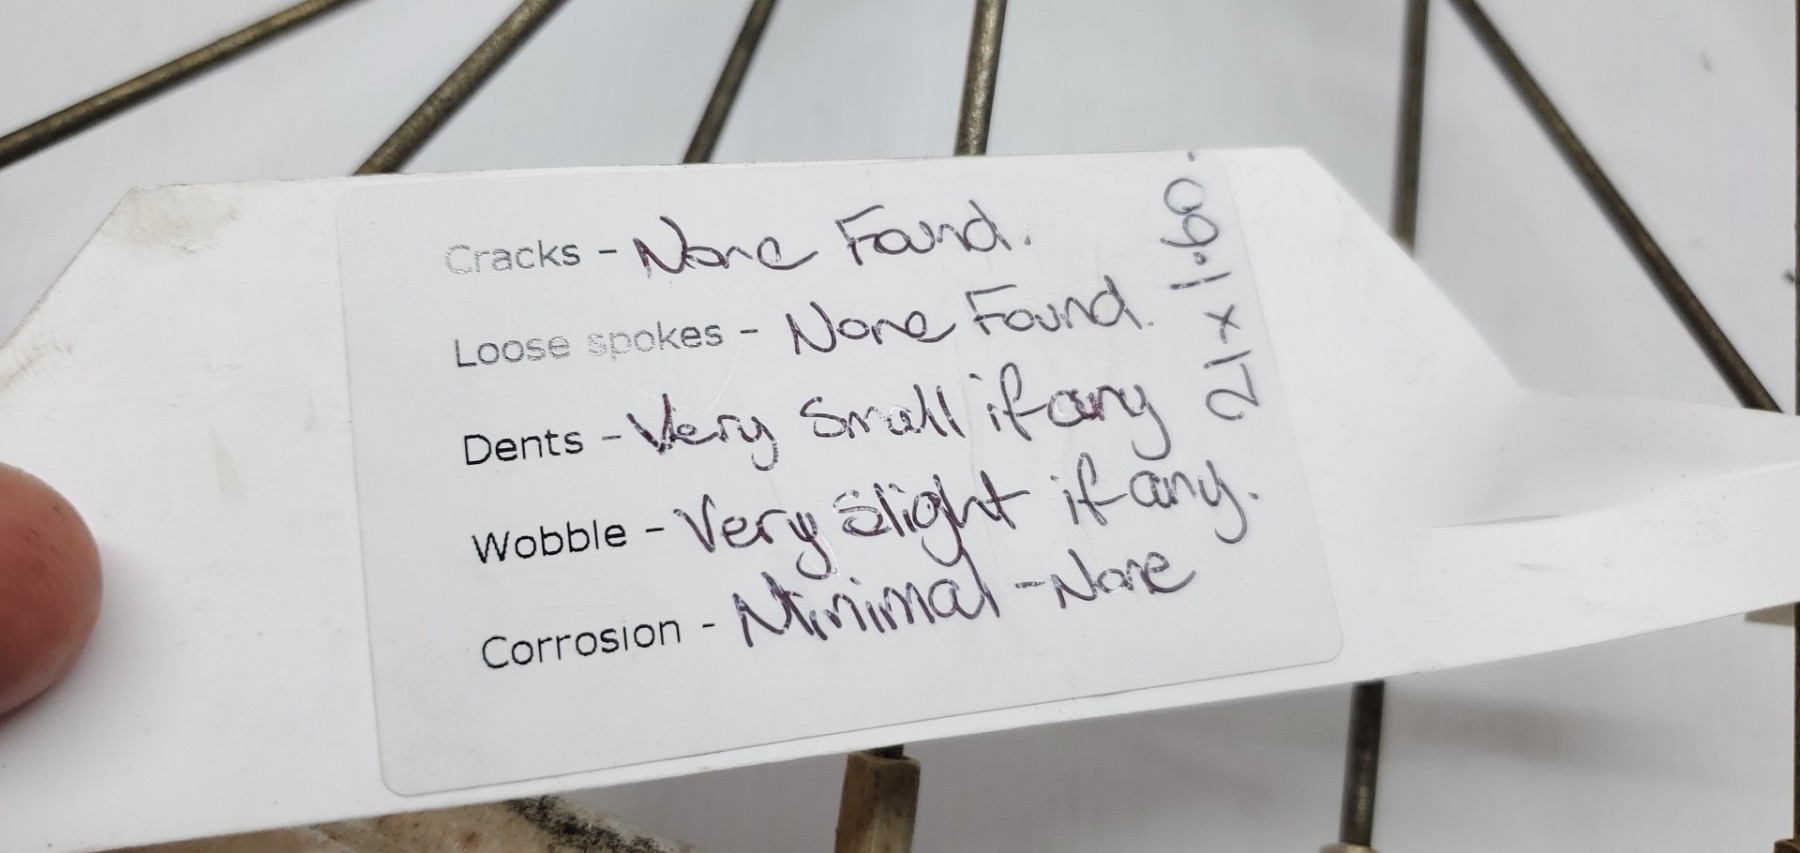 Cracks - None Found.
Loose spokes - None Found.
Dents - Very Small if any
Wobble - Very slight if any.
Corrosion - Minimal - None
21 x 1.60.